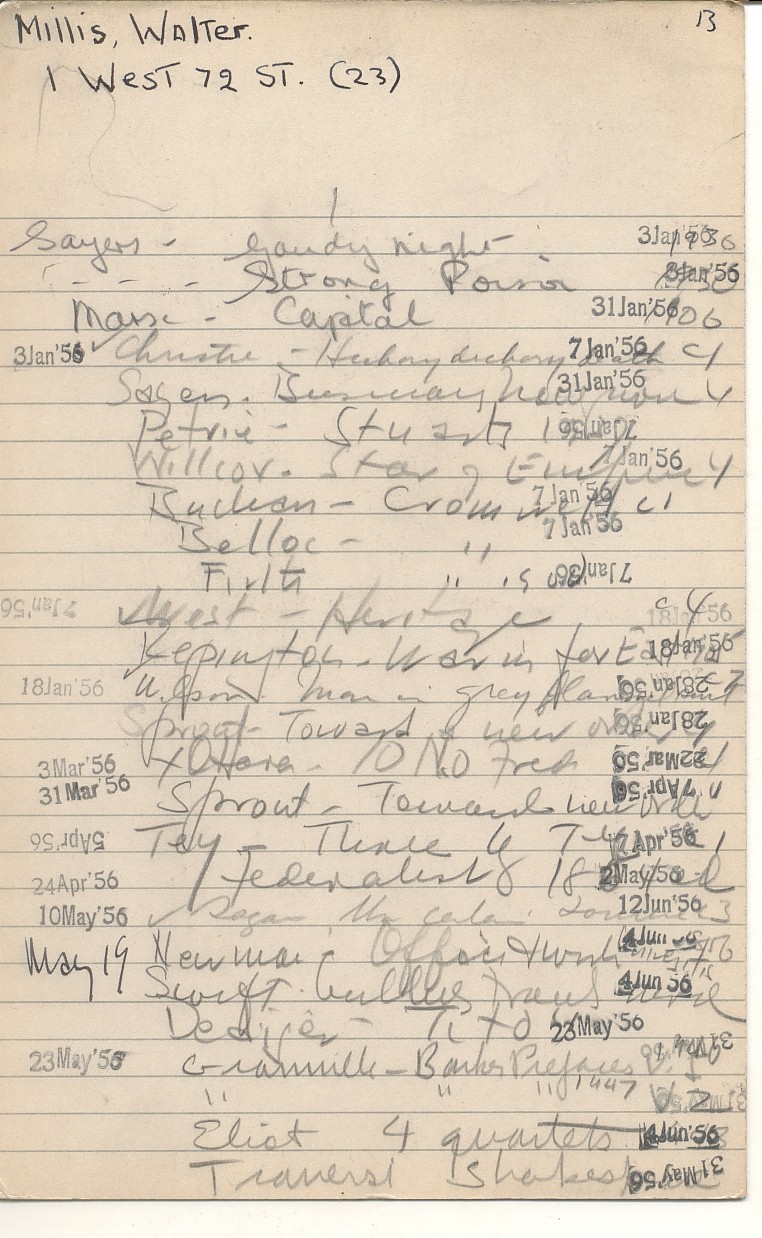 Millis, Walter. 13
1 West 72 St. (23)
1
Sayers - Gaudy night 3Jan'56 1936
- - - - Strong Poison 3Jan'56
Marx - Capital 31Jan'56 1906
3Jan'56 Christie - Hickory dickory death 7Jan'56 c1
Sayers. Busmans honeymoon 31Jan'56 4
Petrie - Stuarts 7Jan'56
Willcox. Star of Empire 7Jan'56 4
Buchan - Cromwell 7Jan'56 c1
Belloc - " 7Jan'56
Firth " 7Jan'56
7Jan'56 West - Heritage c4 18Jan'56
Repington - War in far East 18Jan'56
18Jan'56 Wilson. Man in grey flannel suit 28Jan'56
Sprout - Toward a new order 28Jan'56
3Mar'56 O'Hara - 10 No Fred 22Mar'56
31Mar'56 Sprout - Toward new order 7Apr'56
5Apr'56 Tey - Three by Tey 7Apr'56 1
24Apr'56 Federalist 2May'56
10May'56 Sagan, 12Jun'56 3
May 19 Newman - 4Jun'56
Swift. Gullivers Travels 4Jun'56
Dedijer - Tito 23May'56
23May'56 Granville-Barker Prefaces V. 1 31May'56
" " " 1947 V-2 31May'56
Eliot 4 quartets 4Jun'56
Traversi Shakespeare 31May'56